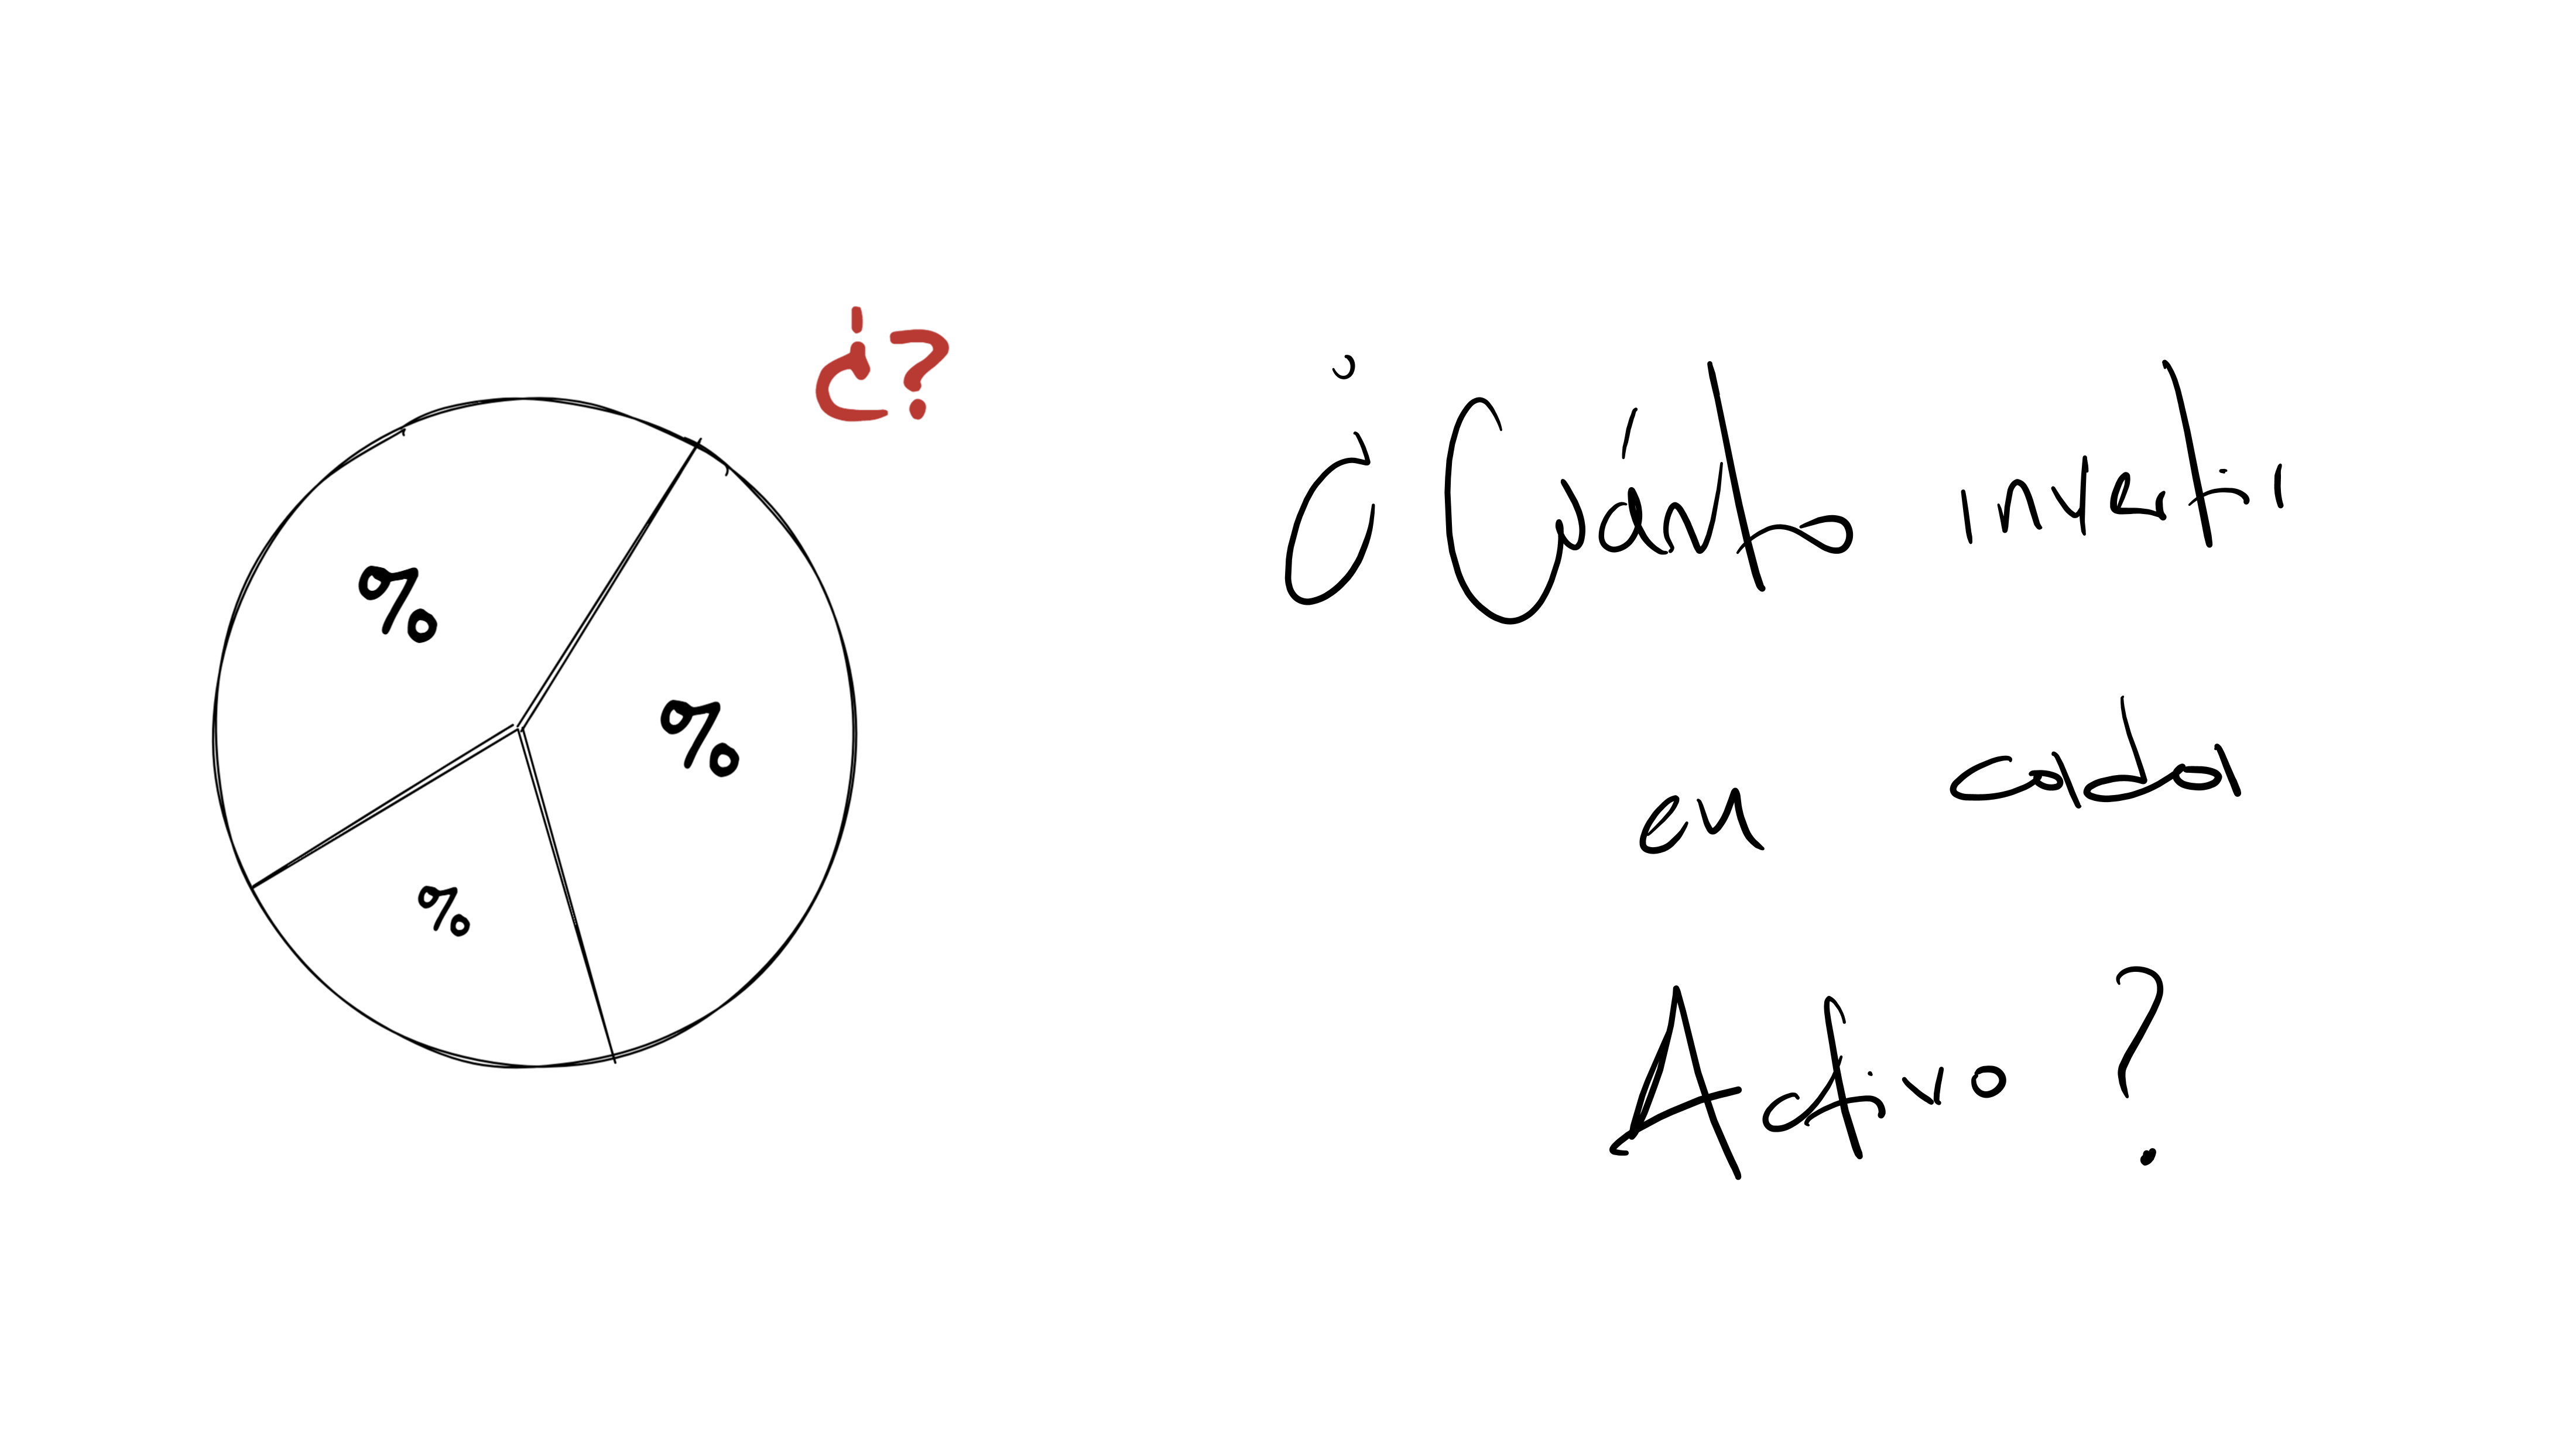 ¿?
%
%
%
¿Cuánto invertir
en cada
Activo?